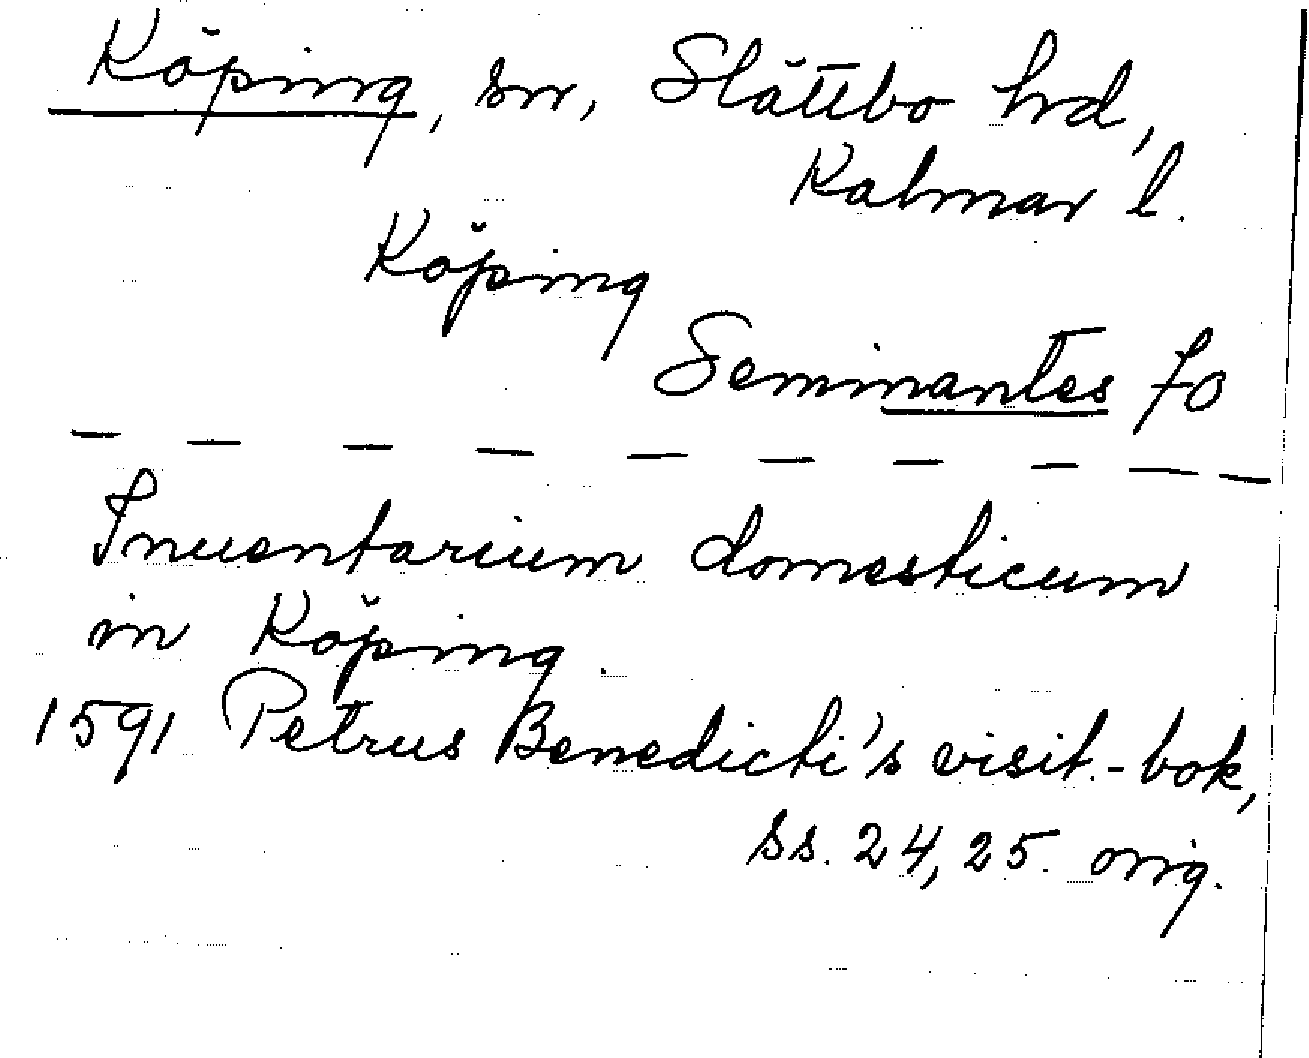 Köping, sn, Slättbo hd,
Kalmar l.
Köping
Seminantes 70
Inuentarium domesticum
in Köping.
1591 Petrus Benedicti's visit.-bok,
ss. 24, 25. orig.